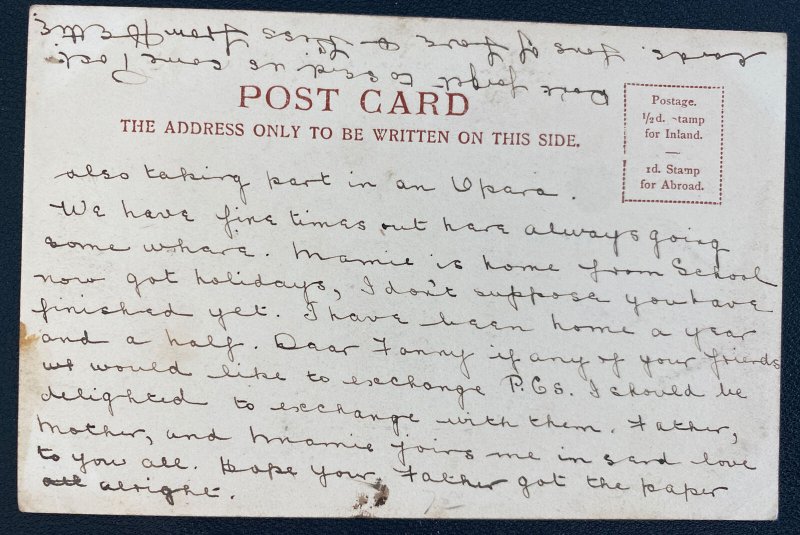 POST CARD
THE ADDRESS ONLY TO BE WRITTEN ON THIS SIDE.
Postage.
½d. stamp
for Inland.
—
1d. Stamp
for Abroad.
also taking part in an Opara.
We have fine times out here always going
some where. Mamie is home from School
now got holidays, I don't suppose you have
finished yet. I have been home a year
and a half. Dear Fanny if any of your friends
would like to exchange P.Cs. I should be
delighted to exchange with them. Father,
Mother, and Mamie joins me in send love
to you all. Hope your Father got the paper
all alright.
Don't forget to send us some Post
cards. Tons of love & kiss from